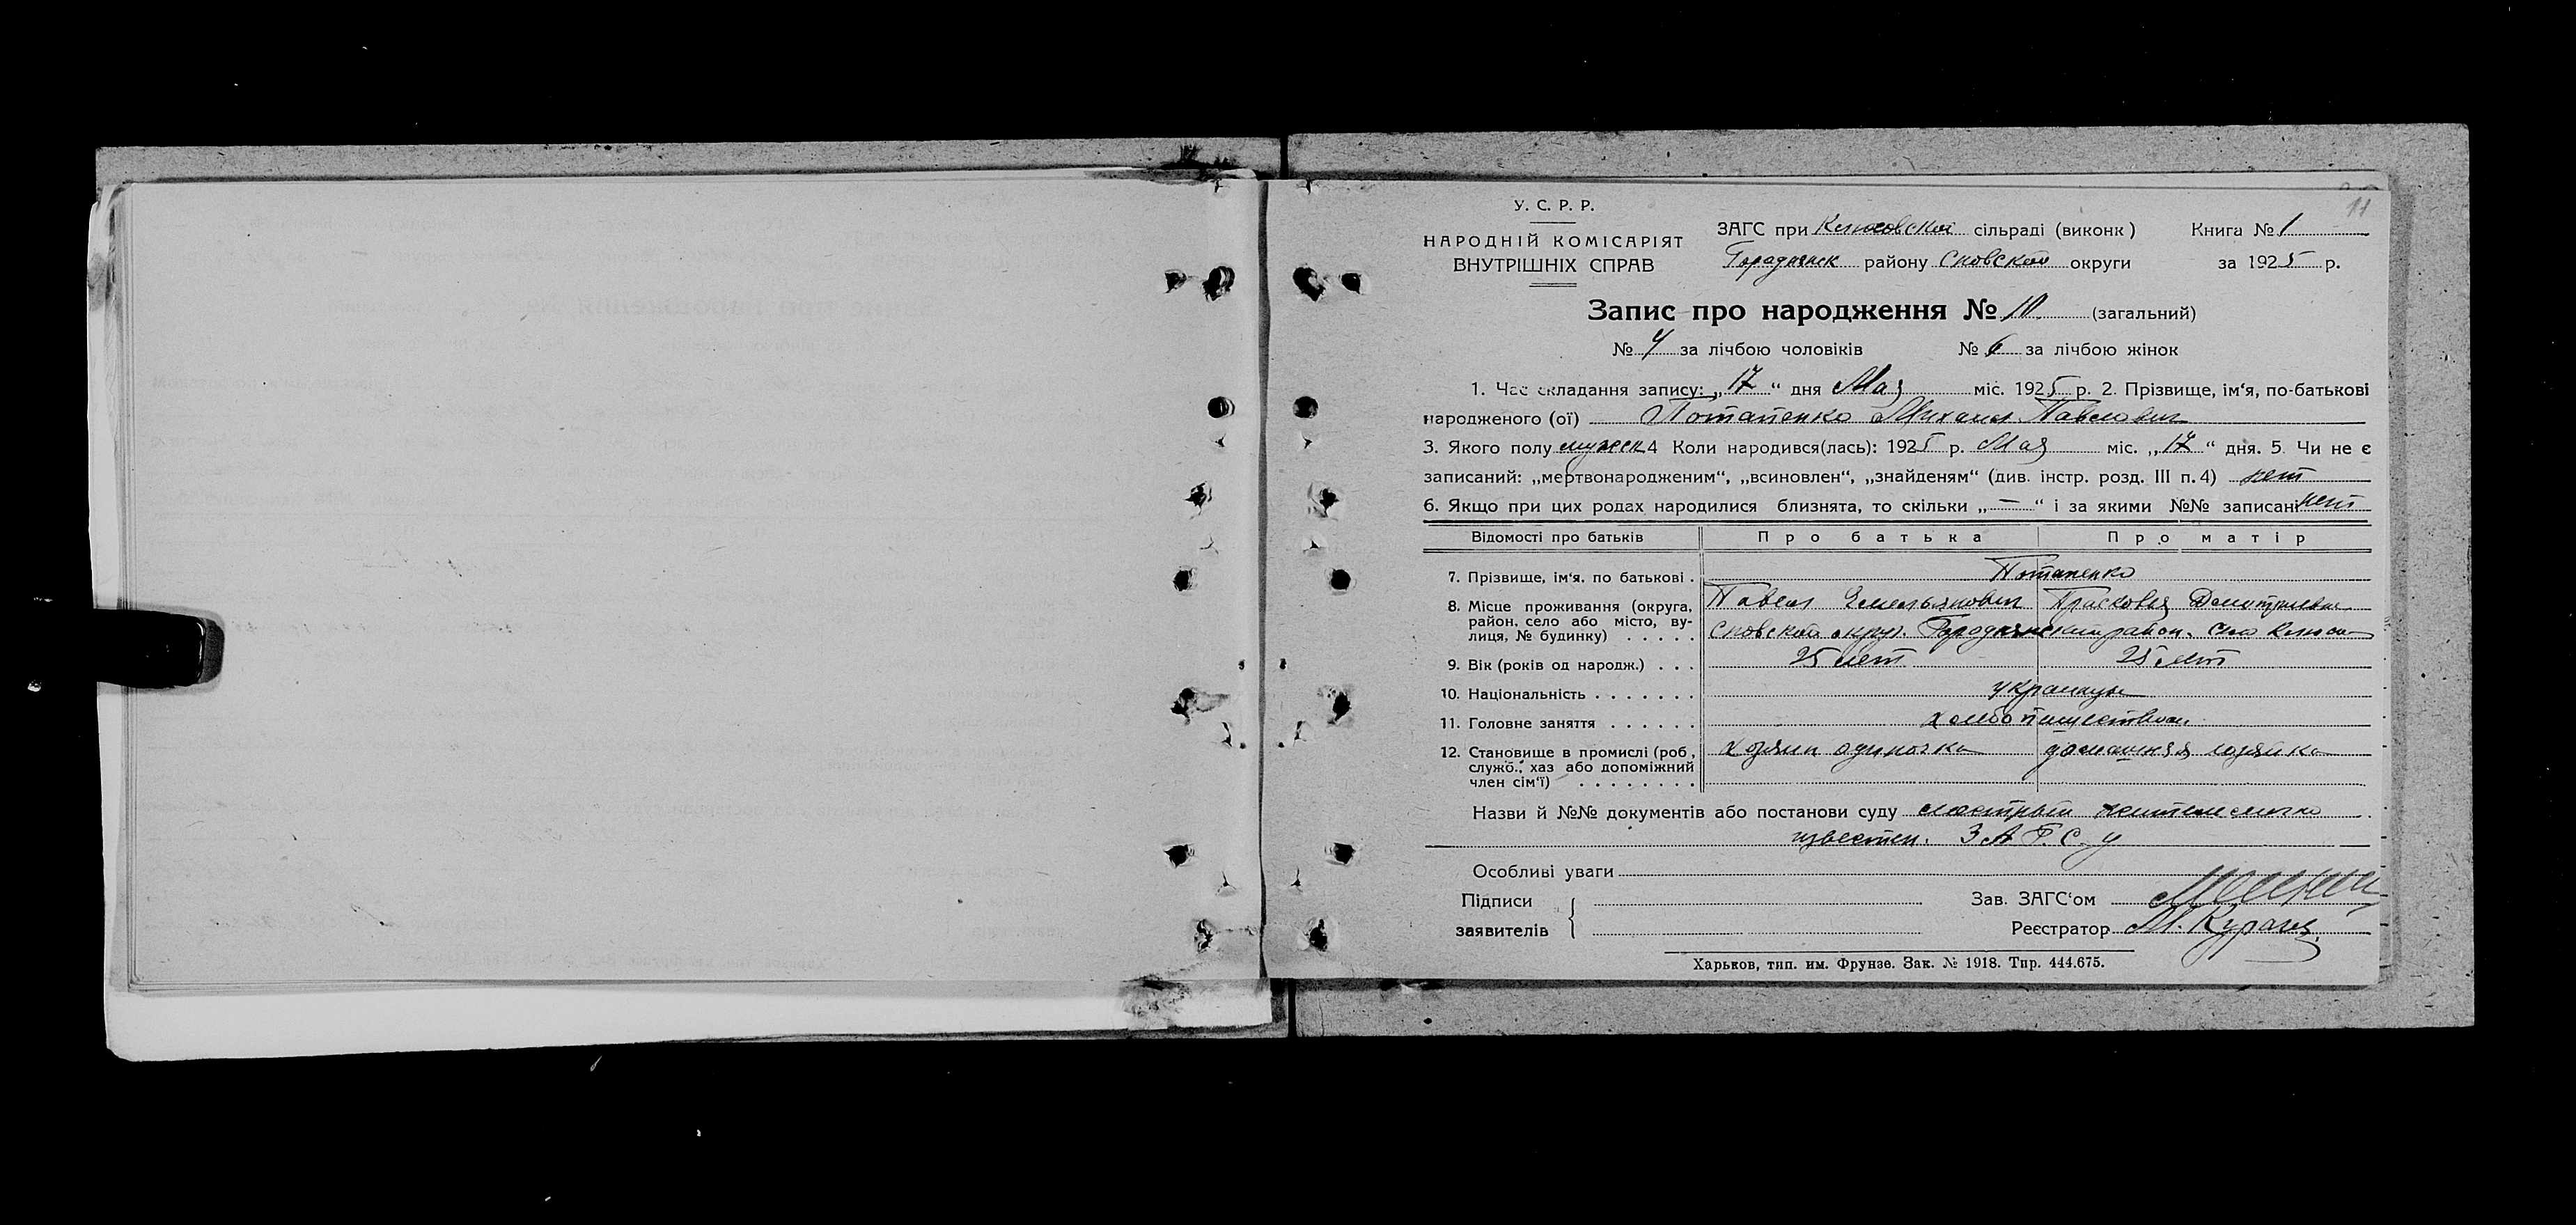 11
У. С. Р. Р.
НАРОДНІЙ КОМІСАРІЯТ
ВНУТРІШНІХ СПРАВ
ЗАГС при Клюсовской сільраді (виконк) Книга № 1
Городнянск району Сновской округи за 1925 р.
Запис про народження № 10 (загальний)
№ 4 за лічбою чоловіків № 6 за лічбою жінок
1. Час складання запису: „17“ дня Мая міс. 1925 р. 2. Прізвище, ім‘я, по-батькові
народженого (ої) Потапенко Михаил Павлович
3. Якого полу мужск 4 Коли народився(лась): 1925 р. Мая міс. „17“ дня. 5. Чи не є
записаний: „мертвонародженим“, „всиновлен“, „знайденям“ (див. інстр. розд. III п. 4) нет
6. Якщо при цих родах народилися близнята, то скільки „—“ і за якими №№ записані нет
Відомості про батьків Про батька Про матір
7. Прізвище, ім‘я, по батькові . Потапенко
Павел Емельянович Прасковья Дмитриевна
8. Місце проживання (округа, район, село або місто, вулиця, № будинку) . . . . . Сновской округ. Городнянский район. село Клюсы
9. Вік (років од народж.) . . . 25 лет 25 лет
10. Національність . . . . . . . украинцы
11. Головне заняття . . . . . . хлебопашеством
12. Становище в промислі (роб, служб., хаз або допоміжний член сім‘ї) . . . . . . . . хозяин одиночка домашняя хозяйка
Назви й №№ документів або постанови суду
известен. ЗАГСу
Особливі уваги
Підписи
заявителів
Зав. ЗАГС‘ом
Реєстратор М.
Харьков, тип. им. Фрунзе. Зак. № 1918. Тир. 444.675.